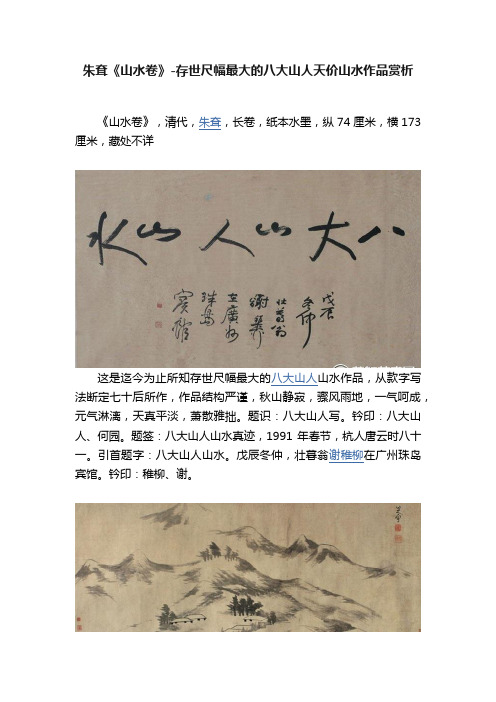 朱耷《山水卷》-存世尺幅最大的八大山人天价山水作品赏析
《山水卷》，清代，朱耷，长卷，纸本水墨，纵 74 厘米，横 173
厘米，藏处不详
八大山人山水
戊辰
冬仲
壯暮翁
謝稚柳
在廣州
珠島
賓館
这是迄今为止所知存世尺幅最大的八大山人山水作品，从款字写
法断定七十后所作，作品结构严谨，秋山静寂，骤风雨地，一气呵成，
元气淋漓，天真平淡，萧散雅拙。题识：八大山人写。钤印：八大山
人、何园。题签：八大山人山水真迹，1991 年春节，杭人唐云时八十
一。引首题字：八大山人山水。戊辰冬仲，壮暮翁谢稚柳在广州珠岛
宾馆。钤印：稚柳、谢。